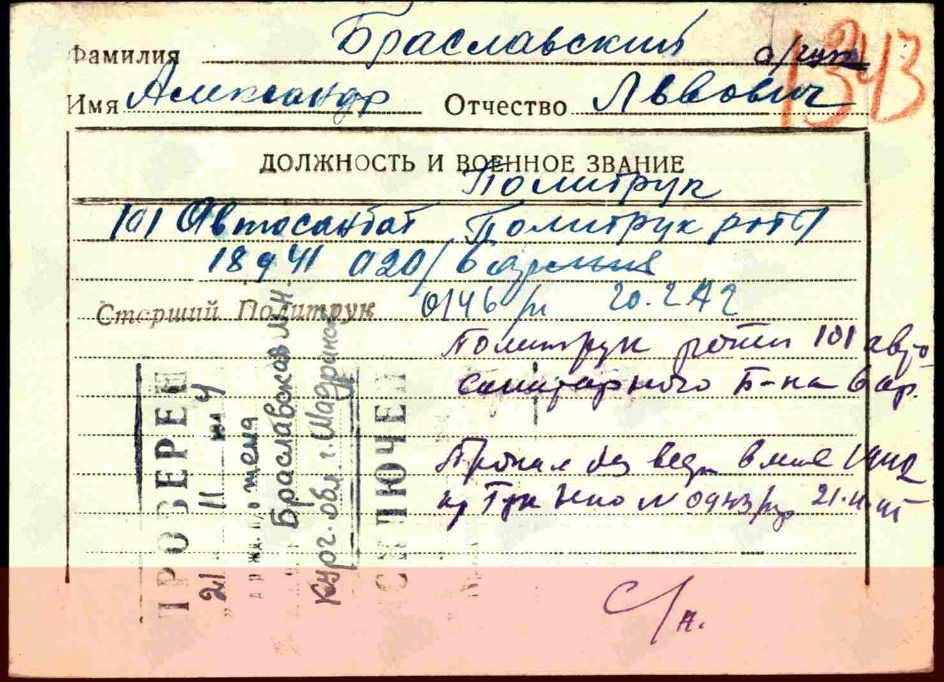 Фамилия Браславский
Имя Александр Отчество Львович
1343
ДОЛЖНОСТЬ И ВОЕННОЕ ЗВАНИЕ
Политрук
101 Автосанбат Политрук роты
18 9 41 020/ 6 армия
Старший Политрук 0146/п 20.2.42
Политрук роты 101 авто
санитарного Б-на 6 ар.
Пропал без вест в мае 1942
пр Гук Нко № 0943/пр 21.II.
С/А.
ПРОВЕРЕН
21 II
жена
Браславская М.Н.
Кург. обл. г. Шадринск